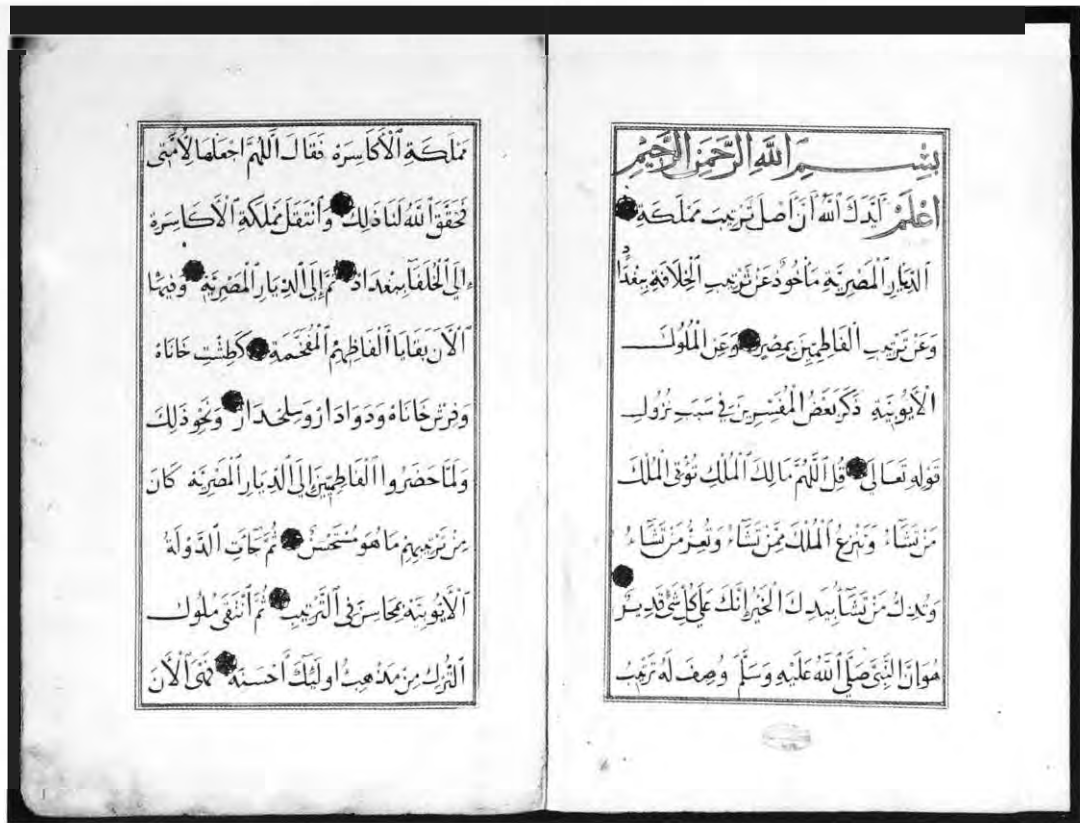 بِسْمِ اللَّهِ الرَّحْمَنِ الرَّحِيمِ
اعْلَمْ أَيَّدَكَ اللَّهُ أَنَّ أَصْلَ تَرْتِيبَ مَمْلَكَةِ
الدِّيَارِ الْمَصْرِيَّةِ مَأْخُوذٌ عَنْ تَرْتِيبِ الْخِلَافَةِ بِبَغْدَاد
وَعَنْ تَرْتِيبِ الْفَاطِمِيِّينَ بِمِصْرَ وَعَنِ الْمُلُوكِ
الْأَيُّوبِيَّةِ ذَكَرَ بَعْضُ الْمُفَسِّرِينَ فِي سَبَبِ نُزُولِ
قَوْلِهِ تَعَالَى قُلِ اللَّهُمَّ مَالِكَ الْمُلْكِ تُؤْتِي الْمُلْكَ
مَنْ تَشَاءُ وَتَنْزِعُ الْمُلْكَ مِمَّنْ تَشَاءُ وَتُعِزُّ مَنْ تَشَاءُ
وَتُذِلُّ مَنْ تَشَا بِيَدِكَ الْخَيْرُ إِنَّكَ عَلَى كُلِّ شَيْءٍ قَدِيرٌ
هُوَ انَّ النَّبِيَّ صَلَّى اللَّهُ عَلَيْهِ وَسَلَّمَ وُصِفَ لَهُ تَرْتِيبُ
مَمْلَكَةِ الْأَكَاسِرَةِ فَقَالَ اللَّهُمَّ اجْعَلْهَا لِأُمَّتِي
فَحَقَّقَ اللَّهُ لَنَا ذَلِكَ وَانْتَقَلَ مَمْلَكَةِ الْأَكَاسِرَةِ
إِلَى الْخُلَفَا بِبَغْدَادْ ثُمَّ إِلَى الدِّيَارِ الْمَصْرِيَّةِ وَفِيهَا
الْآنَ بَقَايَا أَلْفَاظِهِمُ الْمُفَخَّمَةِ كَطِشْتِ خَانَاهْ
وَفِرَشْ خَانَاهْ وَدَوَادَارْ وَسِلَحْدَارْ وَنَحْوِ ذَلِكَ
وَلَمَّا حَضَرُوا الْفَاطِمِيِّنَ إِلَى الدِّيَارِ الْمَصْرِيَّةِ كَانَ
مِنْ تَرْتِيبِهِمْ مَا هُوَ مُسْتَحْسَنٌ ثُمَّ جَاتِ الدَّوْلَةُ
الْأَيُّوبِيَّةُ بِمَحَاسِنَ فِي التَّرْتِيبِ ثُمَّ انْتَقَى مُلُوكُ
التُّرْكِ مِنْ مَذْهِبِ أولَئِكَ أَحْسَنَهُ فَمَتَى الْآنَ